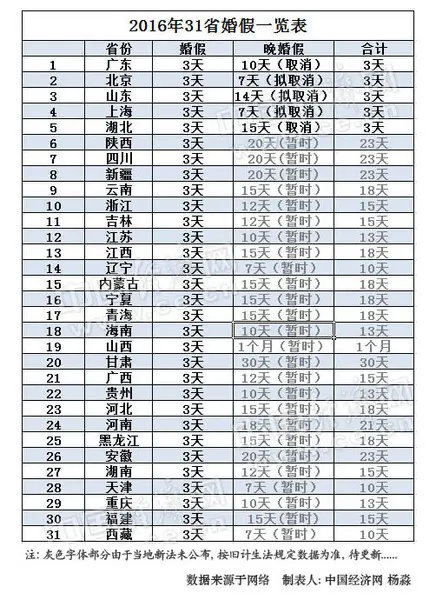 2016年31省婚假一览表
省份 婚假 晚婚假 合计
1 广东 3天 10天（取消） 3天
2 北京 3天 7天（拟取消） 3天
3 山东 3天 14天（拟取消） 3天
4 上海 3天 7天（拟取消） 3天
5 湖北 3天 15天（取消） 3天
6 陕西 3天 20天(暂时) 23天
7 四川 3天 20天(暂时) 23天
8 新疆 3天 20天(暂时) 23天
9 云南 3天 15天（暂时） 18天
10 浙江 3天 12天（暂时） 15天
11 吉林 3天 12天（暂时） 15天
12 江苏 3天 10天（暂时） 13天
13 江西 3天 15天（暂时） 18天
14 辽宁 3天 7天（暂时） 10天
15 内蒙古 3天 15天（暂时） 18天
16 宁夏 3天 15天（暂时） 18天
17 青海 3天 15天（暂时） 18天
18 海南 3天 10天（暂时） 13天
19 山西 3天 1个月（暂时） 1个月
20 甘肃 3天 30天（暂时） 30天
21 广西 3天 12天（暂时） 15天
22 贵州 3天 10天（暂时） 13天
23 河北 3天 15天（暂时） 18天
24 河南 3天 18天（暂时） 21天
25 黑龙江 3天 15天（暂时） 18天
26 安徽 3天 20天（暂时） 23天
27 湖南 3天 12天（暂时） 15天
28 天津 3天 7天（暂时） 10天
29 重庆 3天 10天（暂时） 13天
30 福建 3天 15天(暂时) 15天
31 西藏 3天 7天（暂时） 10天
注：灰色字体部分由于当地新法未公布，按旧计生法规定数据为准，待更新......
数据来源于网络 制表人：中国经济网 杨淼